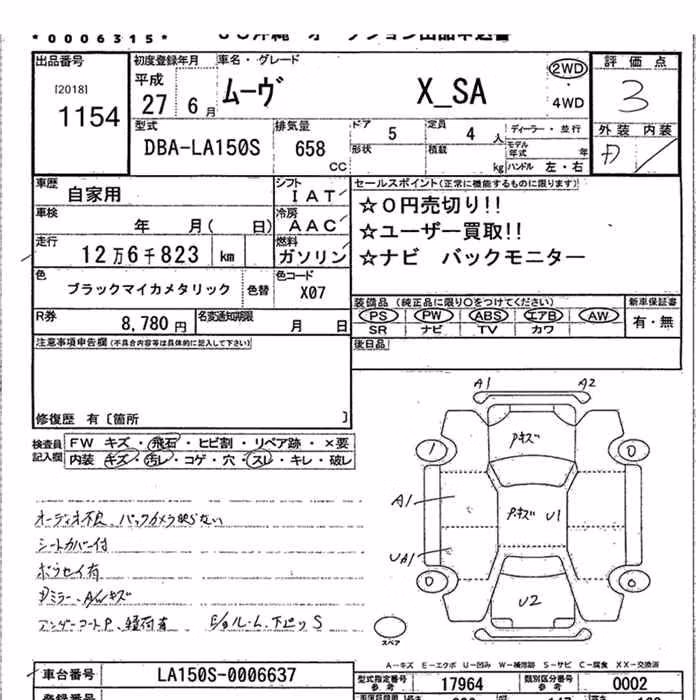 *0006315*
JU沖縄 オークション出品申込書
出品番号
[2018]
1154
初度登録年月
平成
27年 6月
車名・グレード
ムーヴ X_SA
2WD
・
4WD
評価点
3
外装 内装
型式
DBA-LA150S
排気量
658 CC
ドア 5
形状
定員 4 人
積載 kg
ディーラー・並行
モデル年式 年
ハンドル 左・右
車歴 自家用
シフト IAT
車検 年 月( 日)
冷房 AAC
走行 12万6千823 km
燃料 ガソリン
色 ブラックマイカメタリック 色替
色コード X07
R券 8,780 円
名変通知期限 月 日
セールスポイント(正常に機能するものに限ります)
☆0円売切り!!
☆ユーザー買取!!
☆ナビ バックモニター
装備品 (純正品に限り○をつけてください)
PS PW ABS エアB AW
SR ナビ TV カワ
新車保証書
有・無
後日品
注意事項申告欄(不具合内容等は具体的に記入して下さい)
修復歴 有〔箇所 〕
検査員記入欄
FW キズ・飛石・ヒビ割・リペア跡・×要
内装 キズ・汚レ・コゲ・穴・スレ・キレ・破レ
オーディオ不良、バックカメラ映らない
シートカバー付
ドミラー、A/Wキズ
アンダーコートP、下廻りS
A1 A2
Pキズ
1 0
A1
Pキズ U1
UA1
0 0
U2
スペア
A-キズ E-エクボ U-凹み W-補修跡 S-サビ C-腐食 XX-交換済
車台番号 LA150S-0006637
型式指定番号 参考 17964
類別区分番号 参考 0002
登録番号